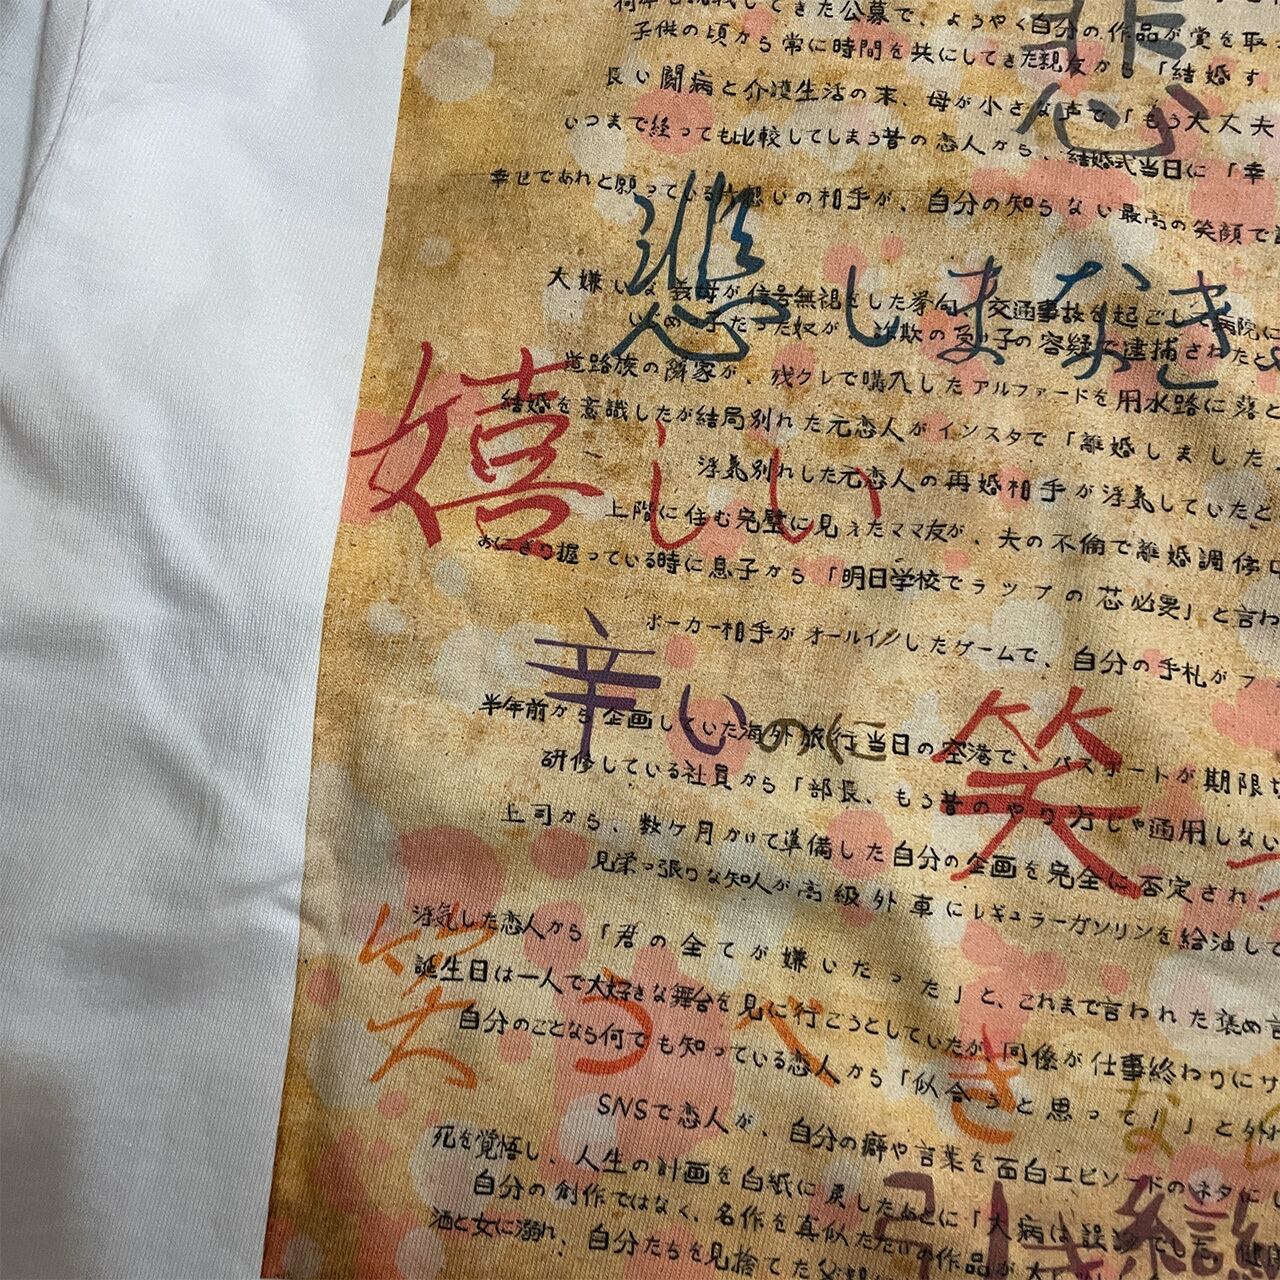 してきた公募で、ようやく自分の作品が賞を取
子供の頃から常に時間を共にしてきた親友から「結婚す
長い闘病と介護生活の末、母が小さな声で、「もう大丈夫
いつまで経っても比較してしまう昔の恋人から、結婚式当日に「幸
幸せであれと願っている片想いの相手が、自分の知らない最高の笑顔で
悲しまなき
大嫌いな義母が信号無視をした挙句、交通事故を起こして病院に
いじめっ子だった奴が、詐欺の受け子の容疑で逮捕されたと
道路族の隣家が、残クレで購入したアルファードを用水路に落と
嬉しい
結婚を意識したが結局別れた元恋人がインスタで「離婚しました
浮気別れした元恋人の再婚相手が浮気していたと
上階に住む完璧に見えたママ友が、夫の不倫で離婚調停
おにぎり握っている時に息子から「明日学校でラップの芯必要」と言わ
ポーカー相手がオールインしたゲームで、自分の手札がフ
辛いのに
笑
半年前から企画していた海外旅行当日の空港で、パスポートが期限切
研修している社員から「部長、もう昔のやり方じゃ通用しない
上司から、数ケ月かけて準備した自分の企画を完全に否定され、
見栄っ張りな知人が高級外車にレギュラーガソリンを給油して
浮気した恋人から「君の全てが嫌いだった」と、これまで言われた褒め言
笑うべきなの
誕生日は一人で大好きな舞台を見に行こうとしていたが、同僚が仕事終わりにサ
自分のことなら何でも知っている恋人から「似合うと思って！」と外
SNSで恋人が、自分の癖や言葉を面白エピソードのネタに
死を覚悟し、人生の計画を白紙に戻したあとに「大病は誤診でした。健
引き
自分の創作ではなく、名作を真似ただけの作品が大
酒と女に溺れ、自分たちを見捨てた父親